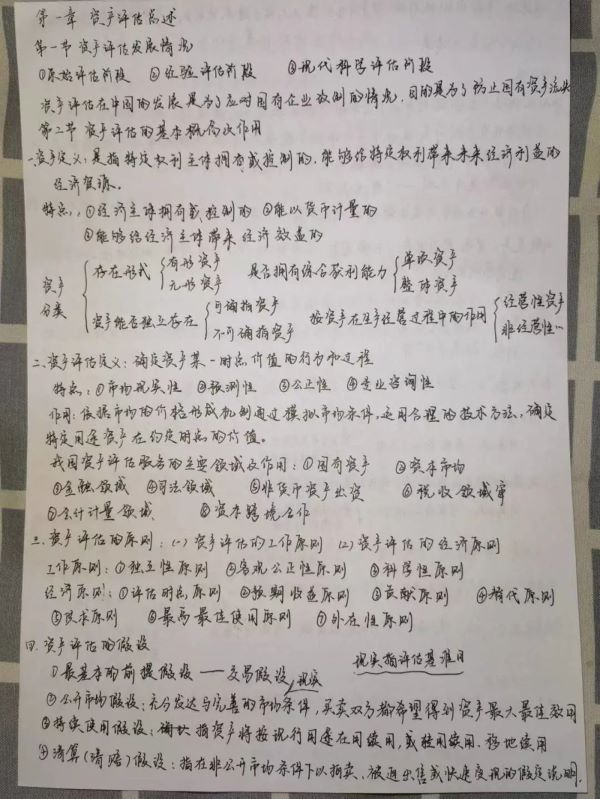 第一章 资产评估总述
第一节 资产评估发展情况
①原始评估阶段 ②经验评估阶段 ③现代科学评估阶段
资产评估在中国的发展是为了应对国有企业改制的情况,目的是为了防止国有资产流失
第二节 资产评估的基本概念及作用
一、资产定义:是指特定权利主体拥有或控制的,能够给特定权利带来未来经济利益的
经济资源。
特点:①经济主体拥有或控制的 ②能以货币计量的
③能够给经济主体带来经济效益的
资产分类 存在形式 有形资产 无形资产 是否拥有综合获利能力 单项资产 整体资产
资产能否独立存在 可确指资产 不可确指资产 按资产在生产经营过程中的作用 经营性资产 非经营性〃
二、资产评估定义:确定资产某一时点价值的行为和过程
特点:①市场现实性 ②预测性 ③公正性 ④专业咨询性
作用:依据市场的价格形成机制通过模拟市场条件,运用合理的技术方法,确定
特定用途资产在约定时点的价值。
我国资产评估服务的主要领域及作用:①国有资产 ②资本市场
③金融领域 ④司法领域 ⑤非货币资产出资 ⑥税收领域
⑦会计计量领域 ⑧资本跨境合作
三、资产评估的原则:(一)资产评估的工作原则 (2)资产评估的经济原则
工作原则:①独立性原则 ②客观公正性原则 ③科学性原则
经济原则:①评估时点原则 ②预期收益原则 ③贡献原则 ④替代原则
⑤供求原则 ⑥最高最佳使用原则 ⑦外在性原则
四、资产评估的假设
现实指评估基准日
①最基本的前提假设——交易假设 现实
②公开市场假设:充分发达与完善的市场条件,买卖双方都希望得到资产最大最佳效用
③持续使用假设: 指资产将按现行用途在用续用,或转用续用、移地续用
④清算(清赔)假设:指在非公开市场条件下以拍卖、被迫出售或快速变现的假定说明。